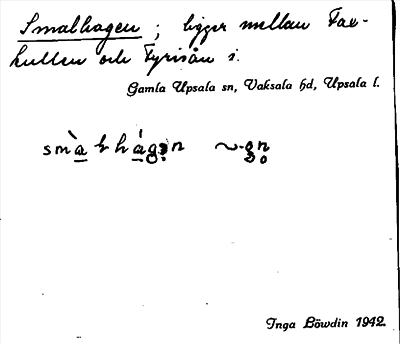 Smalhagen ; ligger mellan Tae-
kullen och Fyrisån i.
Gamla Upsala sn, Vaksala hd, Upsala l.
Inga Löwdin 1942.